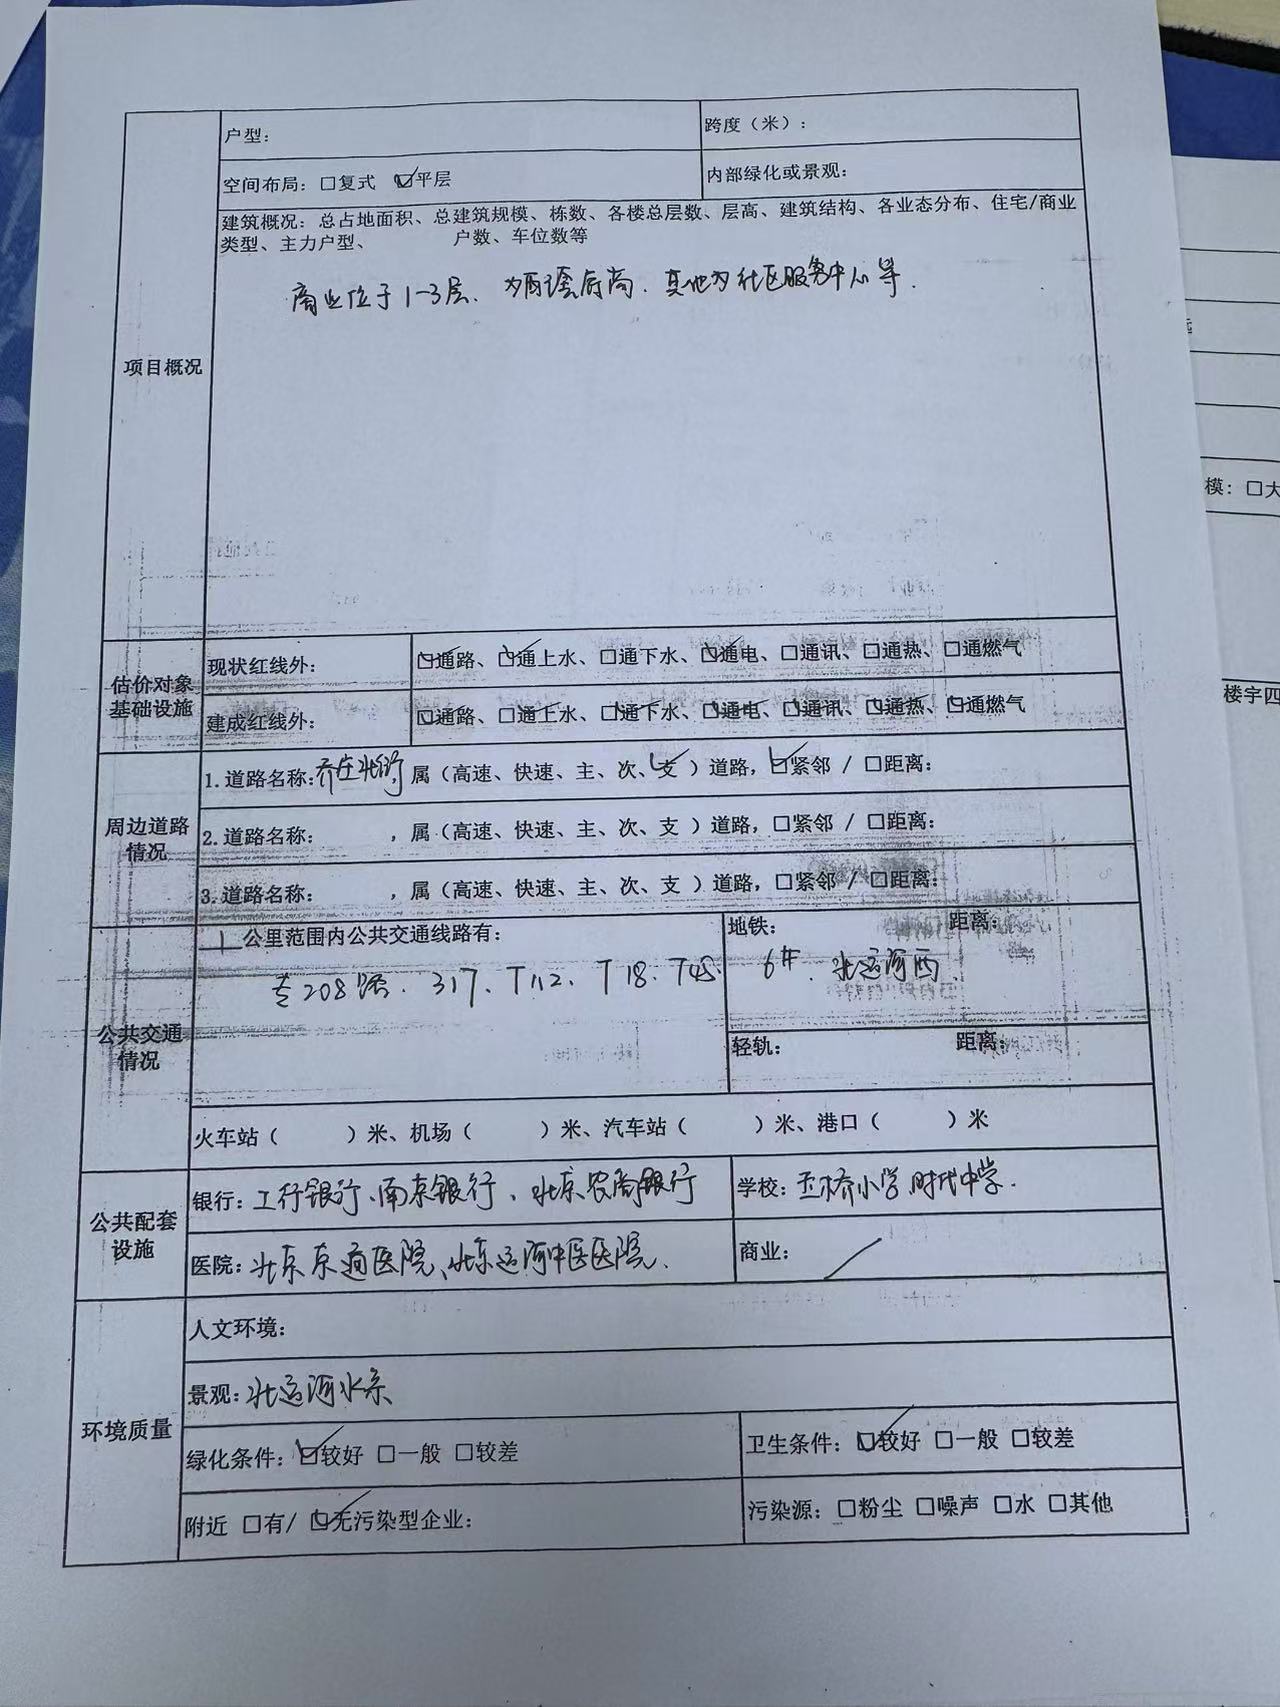 户型：
跨度（米）：
空间布局：□复式 ☑平层
内部绿化或景观：
建筑概况：总占地面积、总建筑规模、栋数、各楼总层数、层高、建筑结构、各业态分布、住宅/商业
类型、主力户型、 户数、车位数等
商业位于1-3层、为配套底商．其他为社区服务中心等．
项目概况
估价对象
基础设施
现状红线外：
☑通路、☑通上水、□通下水、☑通电、□通讯、□通热、□通燃气
建成红线外：
☑通路、☑通上水、☑通下水、☑通电、☑通讯、☑通热、☑通燃气
周边道路
情况
1.道路名称：乔庄北街，属（高速、快速、主、次、支✓）道路，☑紧邻 / □距离：
2.道路名称： ，属（高速、快速、主、次、支 ）道路，□紧邻 / □距离：
3.道路名称： ，属（高速、快速、主、次、支 ）道路，□紧邻 / □距离：
公共交通
情况
1公里范围内公共交通线路有：
专208路、317、T112、T18、
地铁： 距离：
6#．北运河西．
轻轨： 距离：
火车站（ ）米、机场（ ）米、汽车站（ ）米、港口（ ）米
公共配套
设施
银行：工行银行、南京银行、北京农商银行
学校：玉桥小学、时代中学．
医院：北京京通医院、北京运河中医医院．
商业：
环境质量
人文环境：
景观：北运河水系
绿化条件：☑较好 □一般 □较差
卫生条件：☑较好 □一般 □较差
附近 □有/ ☑无污染型企业：
污染源：□粉尘 □噪声 □水 □其他
模：□大
楼宇四